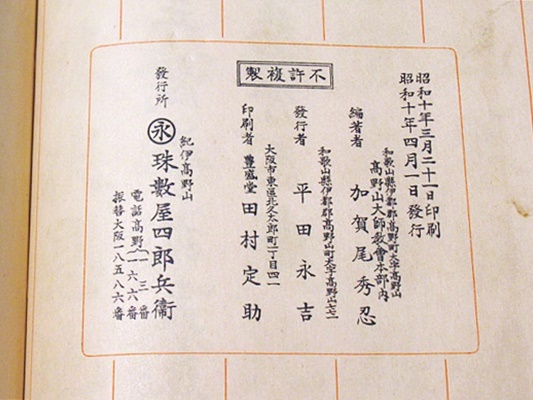 昭和十年三月二十一日印刷
昭和十年四月一日發行
不許複製
和歌山縣伊都郡高野町大字高野山
高野山大師教會本部內
編著者 加賀尾秀忍
和歌山縣伊都郡高野町大字高野山七七一
發行者 平田永吉
大阪市東區北久太郎町二丁目四一
印刷者 豊盛堂 田村定助
紀伊高野山
發行所 永 珠數屋四郎兵衞
電話高野(一三番
一六六番
振替大阪一八五八六番